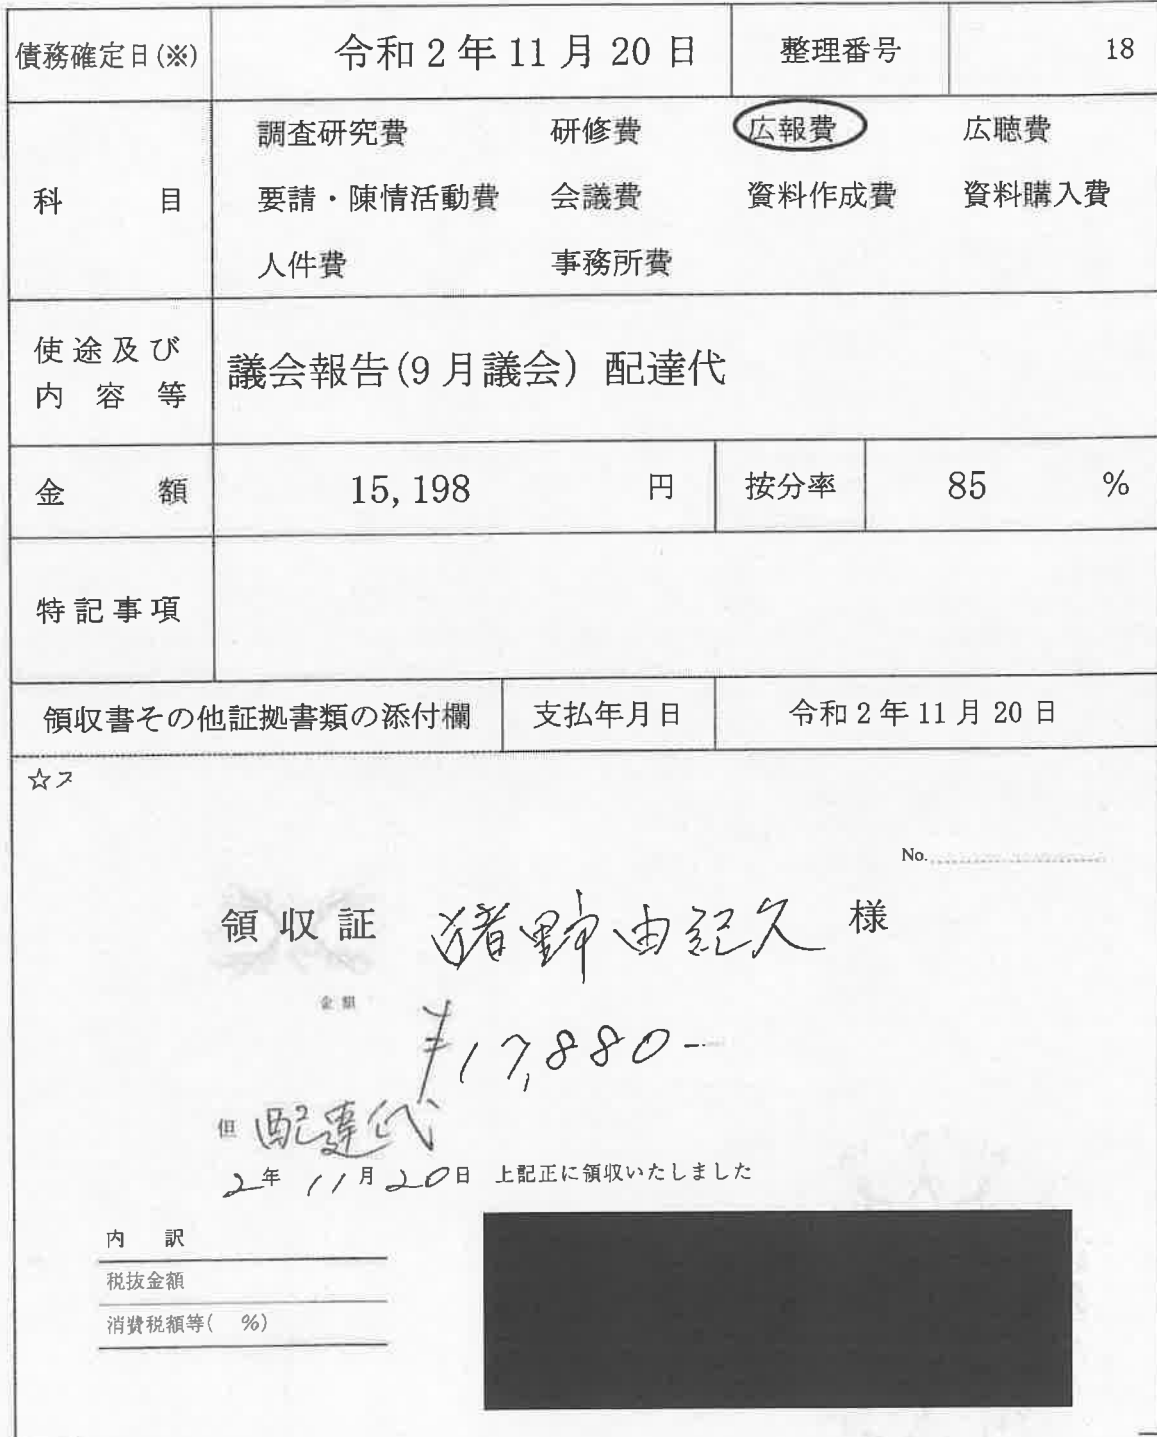 債務確定日(※) 令和2年11月20日 整理番号 18
調査研究費 研修費 広報費 広聴費
科目 要請・陳情活動費 会議費 資料作成費 資料購入費
人件費 事務所費
使途及び内容等 議会報告(9月議会) 配達代
金額 15,198 円 按分率 85 %
特記事項
領収書その他証拠書類の添付欄 支払年月日 令和2年11月20日
☆ヌ
No.
領収証 猪野由紀久 様
金額
¥17,880-
但 配達代
2年11月20日 上記正に領収いたしました
内訳
税抜金額
消費税額等( %)